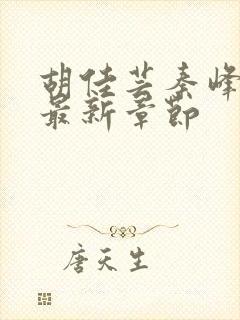 胡佳芸秦峰
最新章节
唐天生